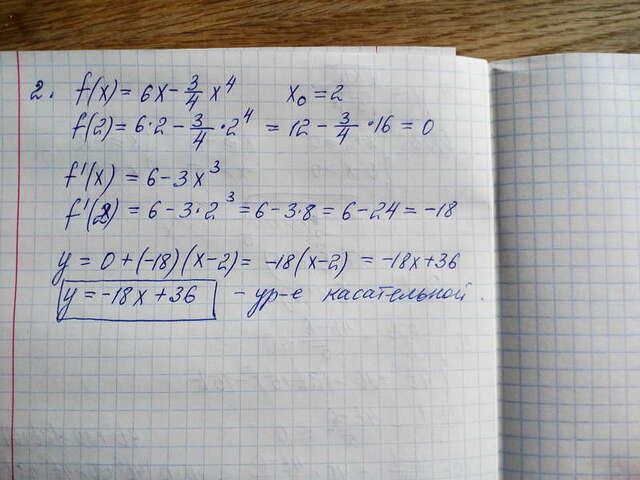 2. f(x) = 6x - 3/4 x⁴ x₀ = 2
f(2) = 6·2 - 3/4 · 2⁴ = 12 - 3/4 · 16 = 0
f'(x) = 6 - 3x³
f'(2) = 6 - 3·2³ = 6 - 3·8 = 6 - 24 = -18
y = 0 + (-18)(x-2) = -18(x-2) = -18x + 36
y = -18x + 36 - ур-е касательной.